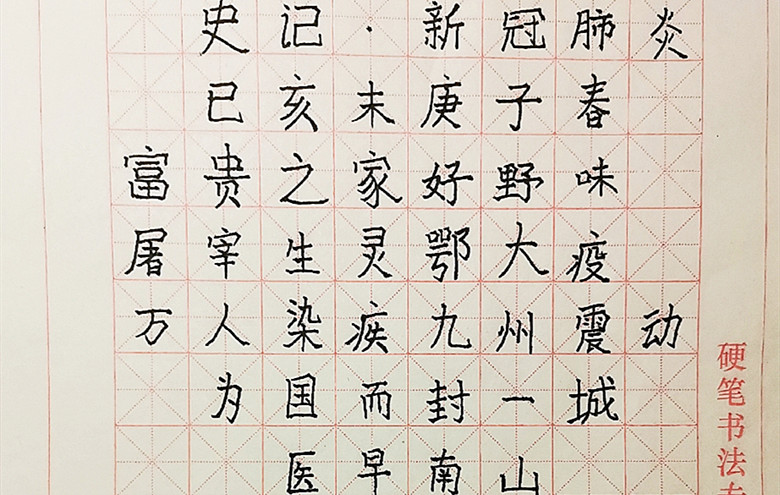 史记·新冠肺炎
已亥末庚子春
富贵之家好野味
屠宰生灵鄂大疫
万人染疾九州震动
为国而封一城
医早南山
硬笔书法